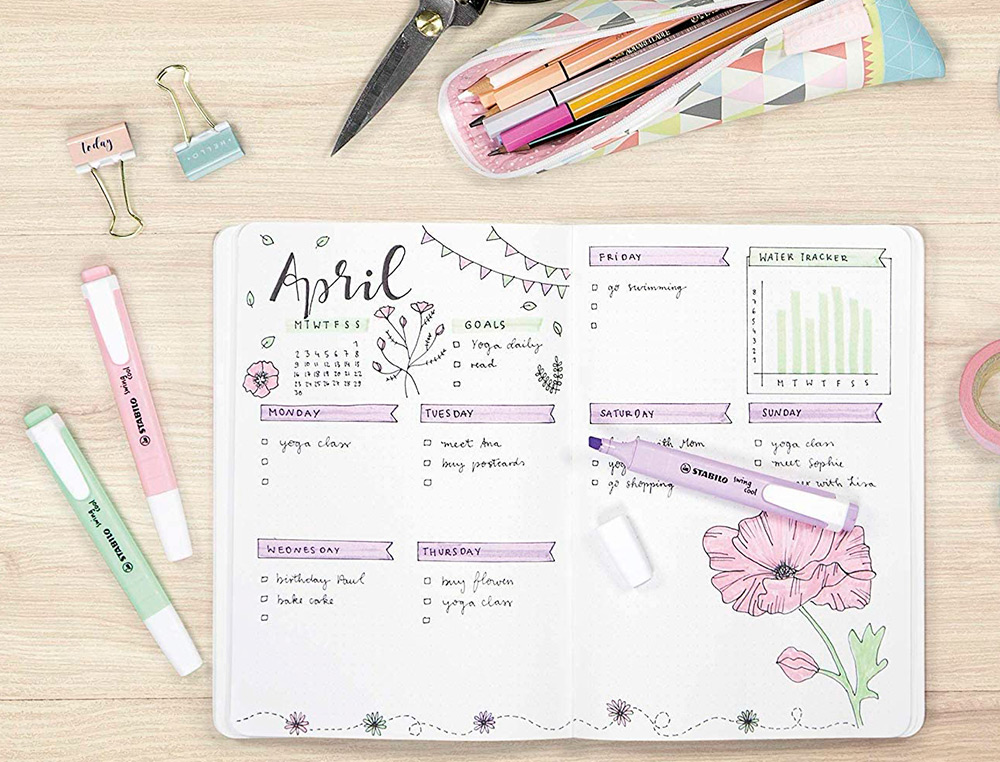 today
HELLO
April
M T W T F S S
1
2 3 4 5 6 7 8
9 10 11 12 13 14 15
16 17 18 19 20 21 22
23 24 25 26 27 28 29
30
GOALS
Yoga daily
read
FRIDAY
go swimming
WATER TRACKER
8
7
6
5
4
3
2
1
M T W T F S S
MONDAY
yoga class
TUESDAY
meet Ana
buy postcards
SATURDAY
with Mom
go shopping
SUNDAY
yoga class
meet Sophie
with Lisa
WEDNESDAY
birthday Paul
bake cake
THURSDAY
buy flowers
yoga class
STABILO swing cool
STABILO swing cool
STABILO swing cool